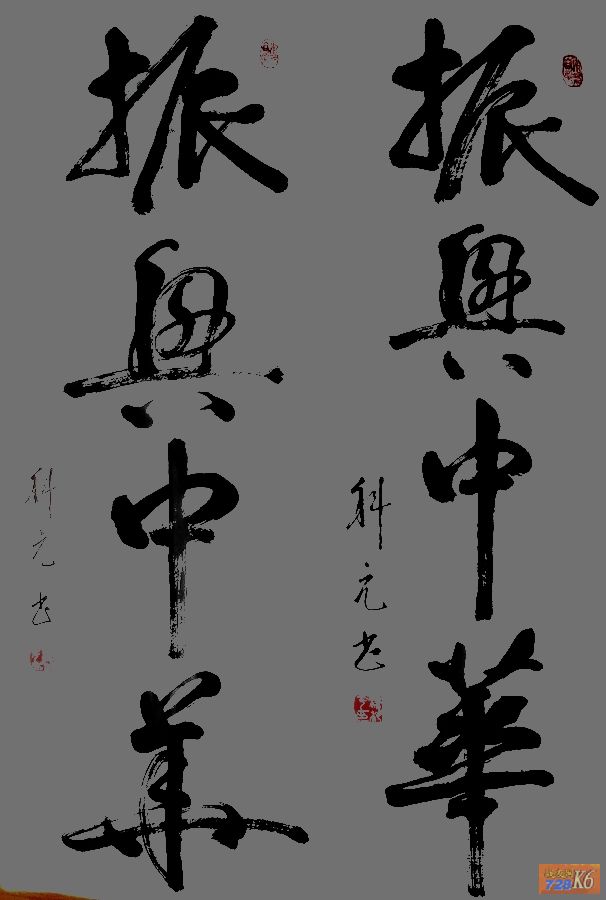 振興中華
科元书
振興中華
科元书
728K6